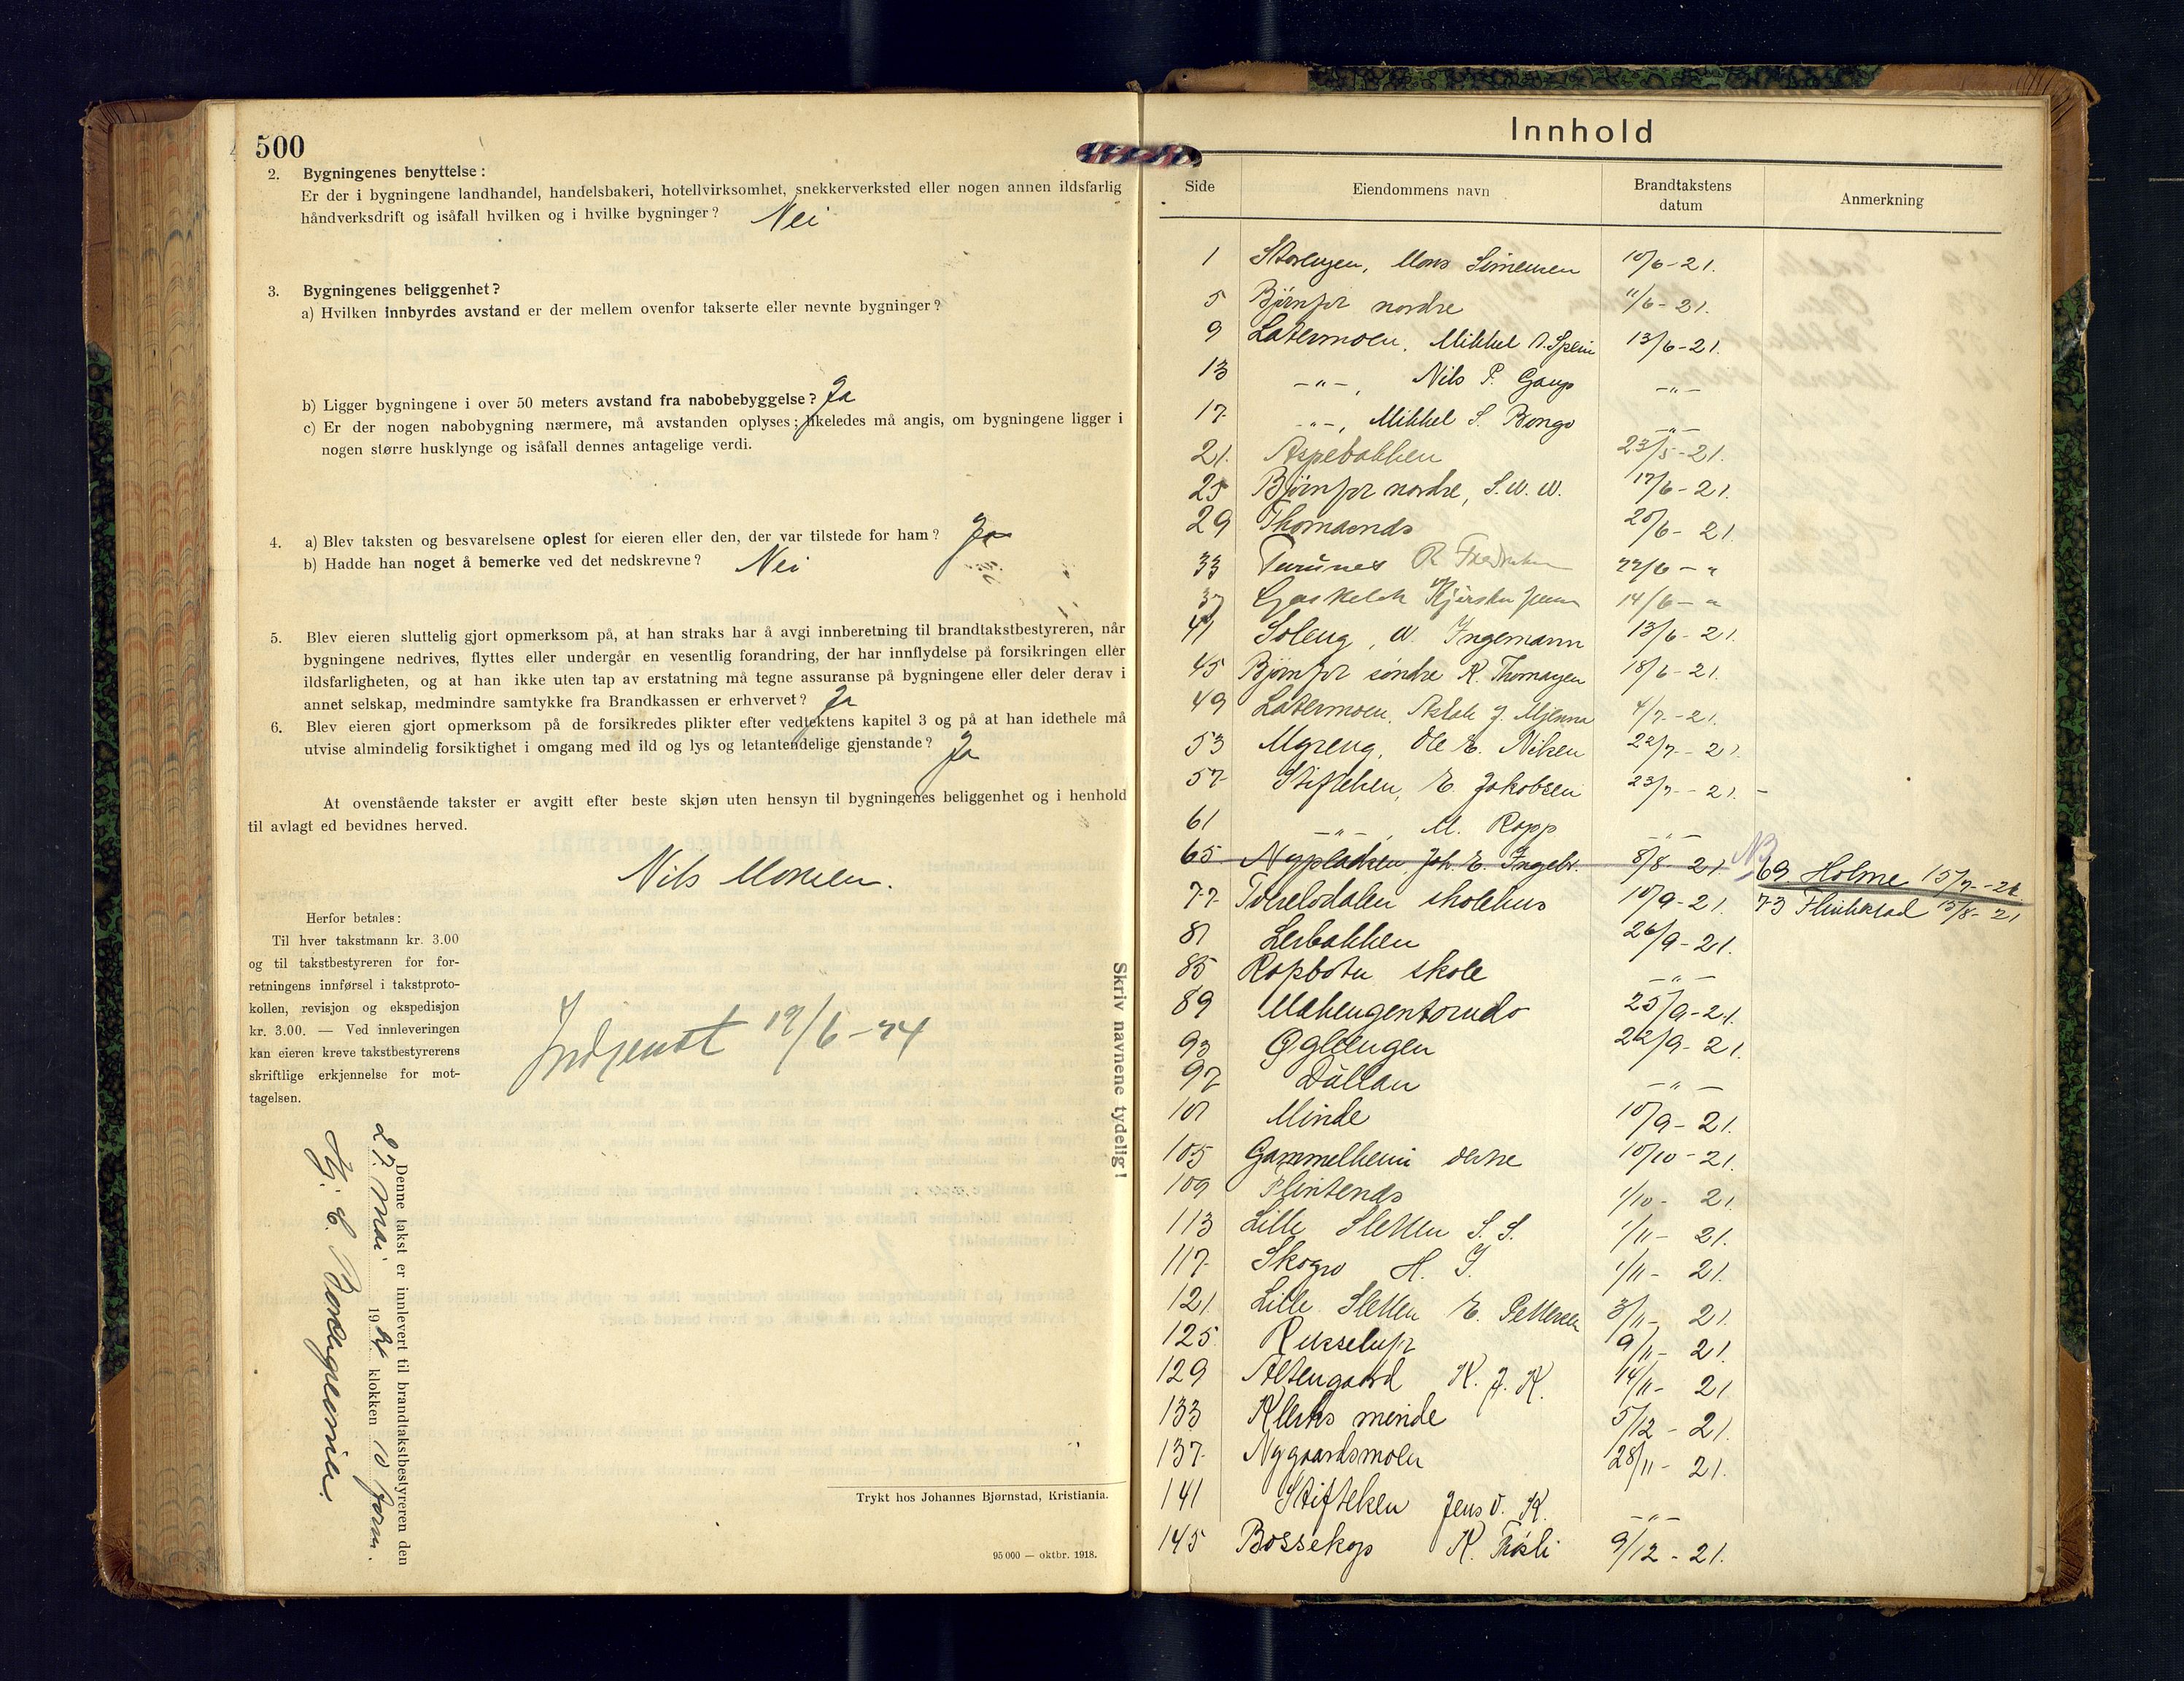 500
2. Bygningenes benyttelse:
Er der i bygningene landhandel, handelsbakeri, hotellvirksomhet, snekkerverksted eller nogen annen ildsfarlig
håndverksdrift og isåfall hvilken og i hvilke bygninger? Nei
3. Bygningenes beliggenhet?
a) Hvilken innbyrdes avstand er der mellem ovenfor takserte eller nevnte bygninger?
b) Ligger bygningene i over 50 meters avstand fra nabobebyggelse? Ja
c) Er der nogen nabobygning nærmere, må avstanden oplyses; likeledes må angis, om bygningene ligger i
nogen større husklynge og isåfall dennes antagelige verdi.
4. a) Blev taksten og besvarelsene oplest for eieren eller den, der var tilstede for ham? Ja
b) Hadde han noget å bemerke ved det nedskrevne? Nei
5. Blev eieren sluttelig gjort opmerksom på, at han straks har å avgi innberetning til brandtakstbestyreren, når
bygningene nedrives, flyttes eller undergår en vesentlig forandring, der har innflydelse på forsikringen eller
ildsfarligheten, og at han ikke uten tap av erstatning må tegne assuranse på bygningene eller deler derav i
annet selskap, medmindre samtykke fra Brandkassen er erhvervet? Ja
6. Blev eieren gjort opmerksom på de forsikredes plikter efter vedtektens kapitel 3 og på at han idethele må
utvise almindelig forsiktighet i omgang med ild og lys og letantendelige gjenstande? Ja
At ovenstående takster er avgitt efter beste skjøn uten hensyn til bygningenes beliggenhet og i henhold
til avlagt ed bevidnes herved.
Nils Monsen.
Herfor betales:
Til hver takstmann kr. 3.00
og til takstbestyreren for for-
retningens innførsel i takstproto-
kollen, revisjon og ekspedisjon
kr. 3.00. — Ved innleveringen
kan eieren kreve takstbestyrerens
skriftlige erkjennelse for mot-
tagelsen.
19/6-24
Denne takst er innlevert til brandtakstbestyreren den
27. mai 1924 klokken 10 form.
Skriv navnene tydelig!
Trykt hos Johannes Bjørnstad, Kristiania.
95 000 — oktbr. 1918.
Innhold
Side Eiendommens navn Brandtakstens datum Anmerkning
1 Storengen, Mons Simensen 10/6-21.
5 nordre 11/6-21.
9 Latermoen, Mikkel 13/6-21.
13 -"-, Nils P. Gaup -"-
17 -"-, Mikkel S. Bongo -"-
21. Aspebakken 23/5-21.
25 nordre, 17/6-21.
29 Thomasnds 20/6-21
33 22/6-"
37 14/6-"
41 Soleng, Ingemann 13/6-21.
45 søndre K. Thomasen 18/6-21.
49 Latermoen, 4/7-21.
53 Myreng, Ole E. Nilsen 22/7-21.
57 Stiftelsen, E. Jakobsen 23/7-21.
61 -"-, M. Rapp -"-
65 Nypladsen, Joh. E. Ingebr. 8/8-21. NB 69 Holme 15/7-21
77 skolehus 10/9-21. 73 15/8-21
81 Lerbakken 26/9-21.
85 Rafsbotn skole -"-
89 25/9-21.
93 Øglængen 22/9-21.
97 -"-
101 Minde 10/9-21.
105 Gammelheim 10/10-21.
109 Flintends 1/10-21.
113 Lille Sletten S. S. 1/11-21.
117. 1/11-21.
121. Lille Sletten E. Pettersen 3/11-21.
125 Russeluft 9/11-21.
129 Altengaard K. J. K. 14/11-21
133 minde 5/12-21.
137. Nygaardsmoen 28/11-21.
141 Stiftelsen -"-
145 Bossekop K. 9/12-21.